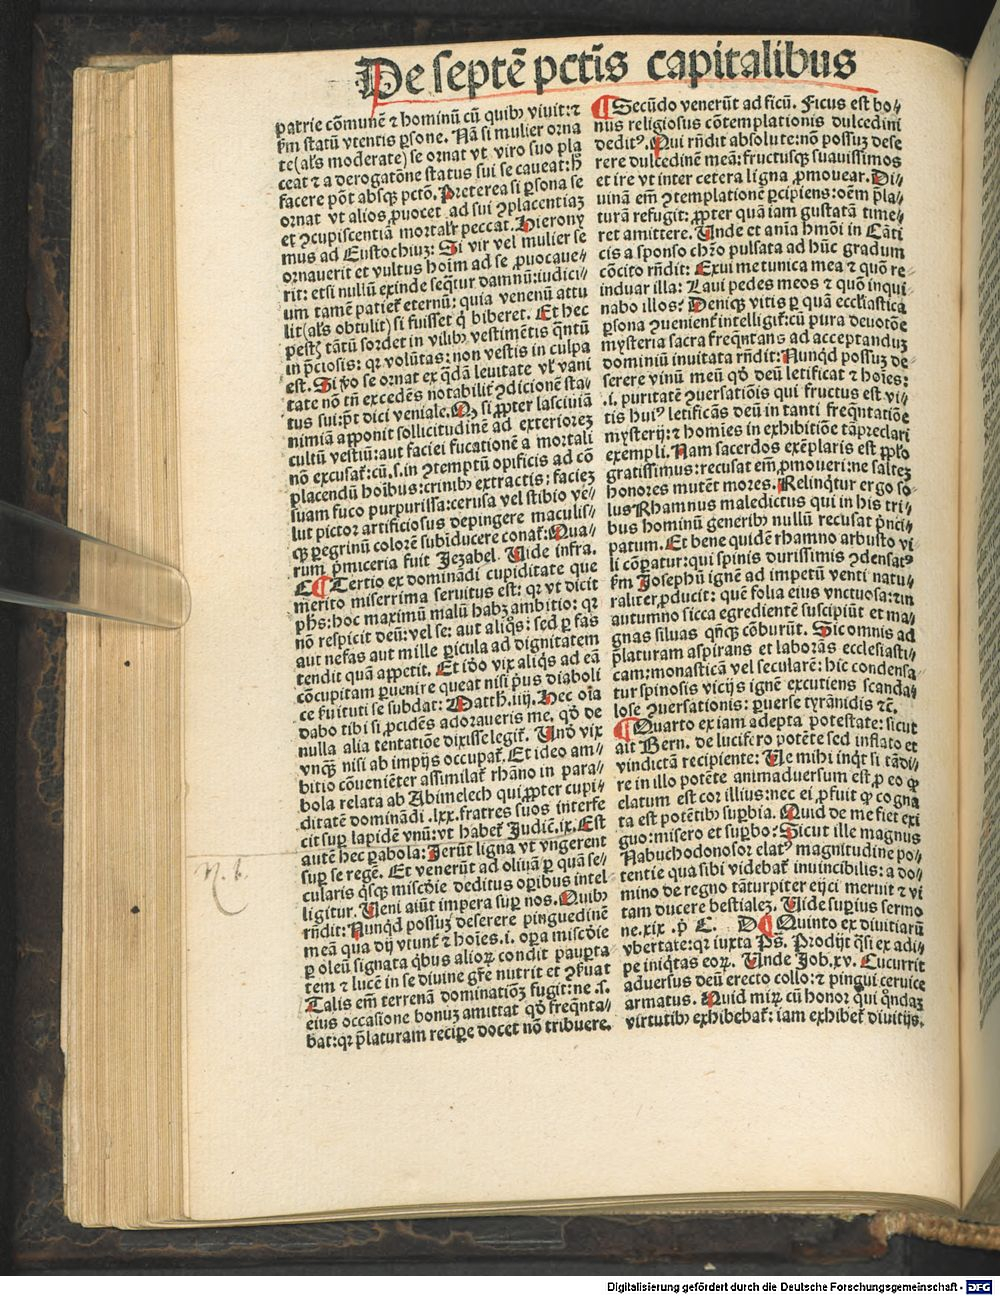 De septē pctīs capitalibus
patrie cōmunē ⁊ hominū cū quibꝫ viuit: ⁊
ẜm statū vtentis ꝑsone. Nā si mulier orna
te (al̓s moderate) se ornat vt viro suo pla
ceat ⁊ a derogatōne status sui se caueat: h̄
facere pōt absqꝫ pctō. Preterea si ꝑsona se
ornat vt alios ꝓuocet ad sui ꝯplacentiaꝫ
et ꝯcupiscentiā mortalr̄ peccat. Hierony
mus ad Eustochiuꝫ: Si vir vel mulier se
ornauerit et vultus hoīm ad se ꝓuocaue⸗
rit: etsi nullū exinde seq̄tur damnū: iudici⸗
um tamē patiet̄ eternū: quia venenū attu
lit (al̓s obtulit) si fuisset q̇ biberet. Et hec
pestꝭ tātū sordet in vilibꝫ vestimētis q̄ntū
in p̄ciosis: qꝛ volūtas: non vestis in culpa
est. Si v̊o se ornat ex q̄dā leuitate vl̓ vani
tate nō tn̄ excedēs notabilit̄ ꝯdicionē sta⸗
tus sui: p̄t dici veniale. Qꝫ si ꝓpter lasciuiā
nimiā apponit sollicitudinē ad exterioreꝫ
cultū vestiū: aut faciei fucationē a mortali
nō excusat̄: cū .s. in ꝯtemptū opificis ad cō
placendū hoībus: crinibꝫ extractis: facieꝫ
suam fuco purpurissa: cerusa vel stibio ve⸗
lut pictor artificiosus depingere maculis⸗
qꝫ ꝑegrinū colorē subinducere conat̄: Qua⸗
rum p̄miceria fuit Jezabel. Vide infra.
C ¶ Tertio ex dominādi cupiditate que
merito miserrima seruitus est: qꝛ vt dicit
ph̄s: hoc maximū malū habꝫ ambitio: qꝛ
nō respicit deū: vel se: aut aliq̊s: sed ꝑ fas
aut nefas aut mille ꝑicula ad dignitatem
tendit quā appetit. Et iō vix aliq̇s ad eā
cōcupitam ꝑuenire queat nisi p̄us diaboli
ce ẜuituti se subdat: Matth.iiij. Hec oīa
dabo tibi si ꝓcidēs adoraueris me. qd̓ de
nulla alia tentatiōe dixisse legit̄. Unō vix
vnqꝫ nisi ab impijs occupat̄. Et ideo am⸗
bitio cōueniēter assimilat̄ rhāno in para⸗
bola relata ab Abimelech qui ꝓpter cupi⸗
ditatē dominādi .lxx. fratres suos interfe
cit suꝑ lapidē vnū: vt habet̄ Judic̄.ix. Est
autē hec ꝑabola: Jerūt ligna vt vngerent
suꝑ se regē. Et venerūt ad oliuā ꝑ quā se⸗
cularis q̇sqꝫ miscd̓ie deditus oꝑibus intel⸗
ligitur. Veni aiūt impera suꝑ nos. Quibꝫ
rn̄dit: Nunqd̓ possuꝫ deserere pinguedinē
meā qua dij vtunt̄ ⁊ hoīes .i. oꝑa miscd̓ie
ꝑ oleū signata q̇bus alioꝝ condit pauꝑta
tem ⁊ lucē in se diuine gr̄e nutrit et ꝯẜuat
Talis em̄ terrenā dominatiōꝫ fugit: ne .s.
eius occasione bonuꝫ amittat qd̓ freq̄nta⸗
bat: qꝛ p̄laturam reciꝑe docet nō tribuere.
¶ Secūdo venerūt ad ficū. Ficus est bo⸗
nus religiosus cōtemplationis dulcedini
deditꝰ. Qui rn̄dit absolute: nō possuꝫ dese
rere dulcedinē meā: fructusqꝫ suauissimos
et ire vt inter cetera ligna ꝓmouear. Di⸗
uinā em̄ ꝯtemplationē ꝑcipiens: oēm p̄la⸗
turā refugit: ꝓpter quā iam gustatā time⸗
ret amittere. Unde et aīa hm̄oi in Cāti
cis a sponso chr̄o pulsata ad hūc gradum
cōcito rn̄dit: Exui me tunica mea ⁊ quō re⸗
induar illa: Laui pedes meos ⁊ quō inqui⸗
nabo illos: Deniqꝫ vitis ꝑ quā ecclīastica
ꝑsona ꝯuenient̄ intelligit̄: cū pura deuotōe
mysteria sacra freq̄ntans ad acceptanduꝫ
dominiū inuitata rn̄dit: Nunqd̓ possuꝫ de⸗
serere vinū meū qd̓ deū letificat ⁊ hoīes:
.i. puritatē ꝯuersatiōis qui fructus est vi⸗
tis huiꝰ letificās deū in tanti freq̄ntatiōe
mysterij: ⁊ homīes in exhibitiōe tā p̄clari
exempli. Nam sacerdos exēplaris est ꝓplo
gratissimus: recusat em̄ ꝓmoueri: ne salteꝫ
honores mutēt mores. Relinq̄tur ergo so⸗
lus Rhamnus maledictus qui in his tri⸗
bus hominū generibꝫ nullū recusat p̄nci⸗
patum. Et bene quidē rhamno arbusto vi
li cōꝑatur: qui spinis durissimis ꝯdensatꝰ
ẜm Josephū ignē ad impetū venti natu⸗
raliter ꝓducit: quē folia eius vnctuosa: ⁊ in
autumno sicca egredientē suscipiūt et ma⸗
gnas siluas qn̄qꝫ cōburūt. Sic omnis ad
p̄laturam aspirans et laborās ecclesiasti⸗
cam: monasticā vel secularē: hic condensa⸗
tur spinosis vicijs ignē excutiens scanda⸗
lose ꝯuersationis: ꝑuerse tyrānidis ⁊c̄.
¶ Quarto ex iam adepta potestate: sicut
ait Bern. de lucifero potēte sed inflato et
vindictā recipiente: Ve mihi inq̇t si tādi⸗
re in illo potēte animaduersum est, ꝓ eo ꝙ
elatum est cor illius: nec ei ꝓfuit ꝙ cogna
ta est potētibꝫ suꝑbia. Quid de me fiet exi
guo: misero et suꝑbo? Sicut ille magnus
Nabuchodonosor elatꝰ magnitudine po⸗
tentie qua sibi videbat̄ inuincibilis: a do⸗
mino de regno tā turpiter eijci meruit ⁊ vi
tam ducere bestialeꝫ. Vide suꝑius sermo
ne.xix .p̄ C. D ¶ Quinto ex diuitiarū
vbertate: qꝛ iuxta Ps̄. Prodijt q̄si ex adi⸗
pe iniq̇tas eoꝝ. Unde Job.xv. Cucurrit
aduersus deū erecto collo: ⁊ pingui ceruice
armatus. Quid miꝝ cū honor qui q̊ndaꝫ
virtutibꝫ exhibebat̄: iam exhibet̄ diuitijs.
N. b.
Digitalisierung gefördert durch die Deutsche Forschungsgemeinschaft - DFG